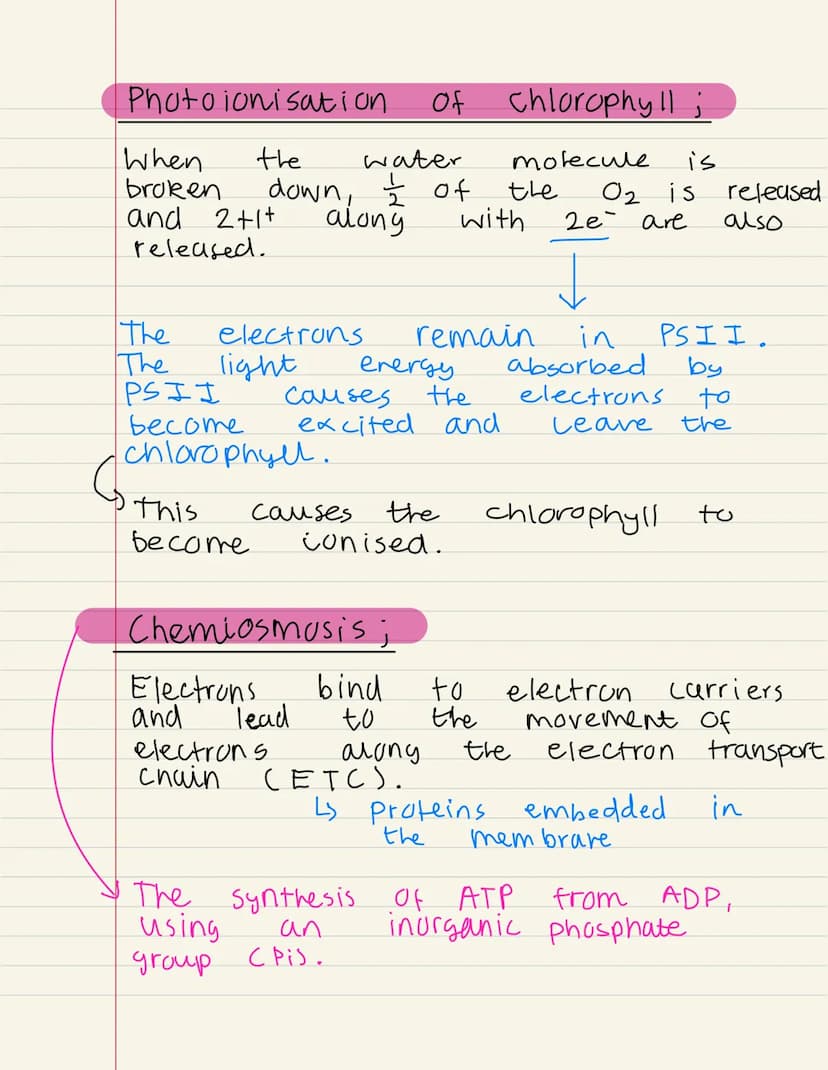 Photoionisation of chlorophyll ;
When the water molecule is
broken down, ½ of the O₂ is released
and 2H⁺ along with 2e⁻ are also
released.
The electrons remain in PSII.
The light energy absorbed by
PSII causes the electrons to
become excited and leave the
chlorophyll.
This causes the chlorophyll to
become ionised.
Chemiosmosis ;
Electrons bind to electron carriers
and lead to the movement of
electrons along the electron transport
chain (ETC).
↳ proteins embedded in
the membrane
The synthesis of ATP from ADP,
using an inorganic phosphate
group (Pi).